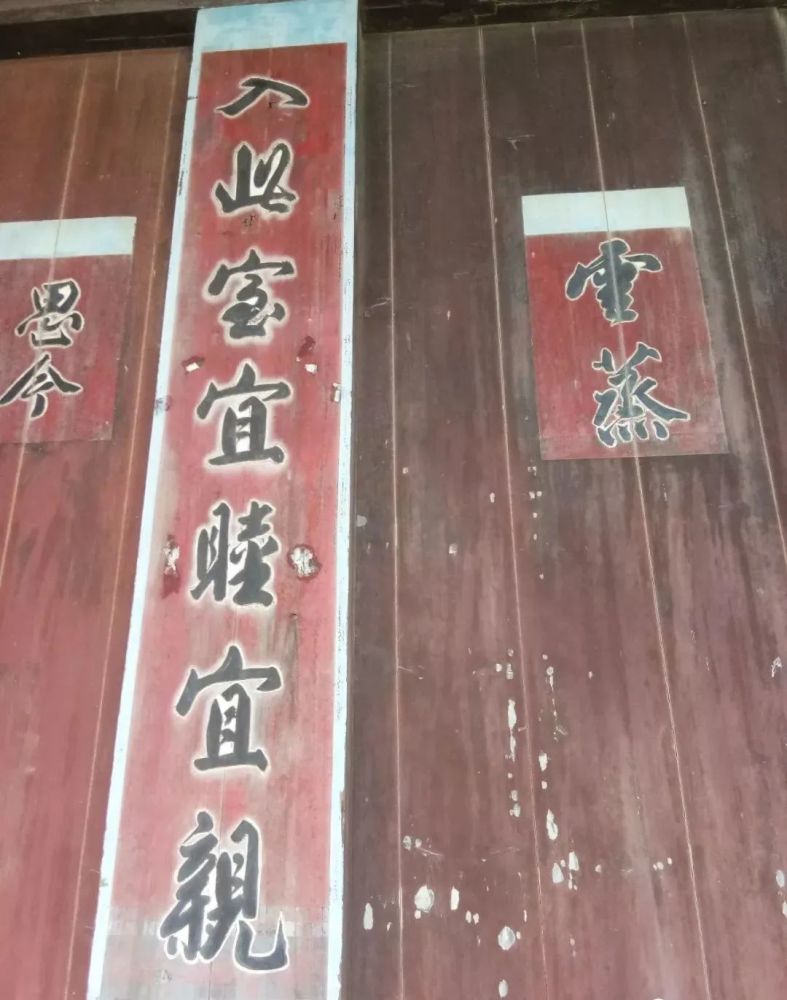 雲蒸
入此室宜睦宜親
今